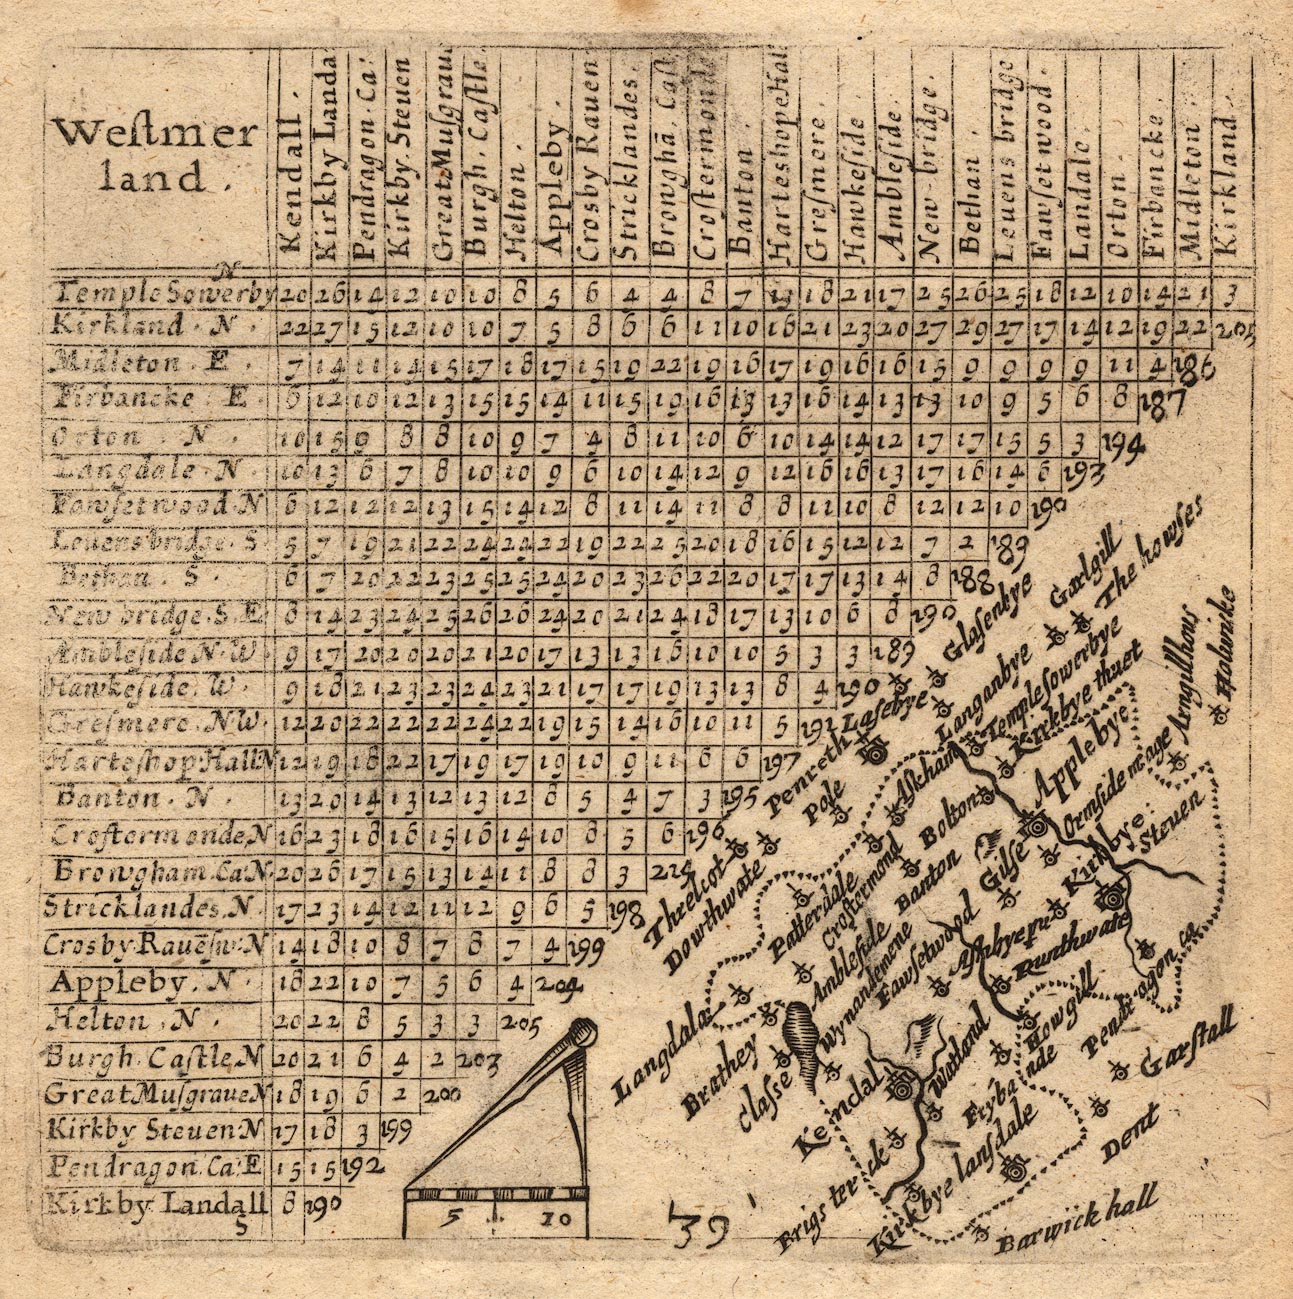 Weſtmer
land .
Kendall .
Kirkby Landa
Pendragon . Ca:
Kirkby . Steuen
Great Muſgraue
Burgh . Caſtle .
Helton .
Appleby .
Crosby Rauen
Stricklandes .
Browghā . Caſt
Croſtermonde
Banton .
Harteshope Hall
Greſmere .
Hawkeſide .
Ambleſide .
New-bridge .
Bethan .
Leuens bridge
Fawſet wood .
Landale .
Orton .
Firbancke .
Midleton .
Kirkland .
Temple Sowerby N 20 26 14 12 10 10 8 5 6 4 4 8 7 13 18 21 17 25 26 25 18 12 10 14 21 3
Kirkland . N . 22 27 15 12 10 10 7 5 8 6 6 11 10 16 21 23 20 27 29 27 17 14 12 19 22 205
Midleton . E . 7 14 11 14 15 17 18 17 15 19 22 19 16 17 19 16 16 15 9 9 9 9 11 4 186
Firbancke : E . 6 12 10 12 13 15 15 14 11 15 19 16 13 13 16 14 13 13 10 9 5 6 8 187
Orton . N . 10 15 9 8 8 10 9 7 4 8 11 10 6 10 14 14 12 17 17 15 5 3 194
Langdale . N . 10 13 6 7 8 10 10 9 6 10 14 12 9 12 16 16 13 17 16 14 6 193
Fawſetwood . N 6 12 12 12 13 15 14 12 8 11 14 11 8 8 11 10 8 12 12 10 190
Leuensbridge . S 5 7 19 21 22 24 24 22 19 22 25 20 18 16 15 12 12 7 2 189
Bethan . S . 6 7 20 22 23 25 25 24 20 23 26 22 20 17 17 13 14 8 188
New bridge . S . E 8 14 23 24 25 26 26 24 20 21 24 18 17 13 10 6 8 190
Ambleſide N . W . 9 17 20 20 20 21 20 17 13 13 16 10 10 5 3 3 189
Hawkeſide . W . 9 18 21 23 23 24 23 21 17 17 19 13 13 8 4 190
Greſmere . N W . 12 20 22 22 22 24 22 19 15 14 16 10 11 5 191
Harteſhop Hall N 12 19 18 22 17 19 17 19 10 9 11 6 6 197
Banton . N . 13 20 14 13 12 13 12 8 5 4 7 3 195
Croſtermonde . N 16 23 18 16 15 16 14 10 8 5 6 196
Browgham . Ca N . 20 26 17 15 13 14 11 8 8 3
Stricklandes . N . 17 23 14 12 11 12 9 6 5 198
Crosby Rauēſw : N 14 18 10 8 7 8 7 4 199
Appleby . N . 18 22 10 7 5 6 4 204
Helton . N . 20 22 8 5 3 3 205
Burgh . Caſtle . N 20 21 6 4 2 203
Great Muſgraue N 18 19 6 2 200
Kirkby Steuen . N 17 18 3 199
Pendragon . Ca : E 15 15 192
Kirkby Landall S 8 190
5 10
39
Glaſenbye
Gaelgill
The howſes
Laſebye
Langanbye
Templeſowerbye
Kirkbye thuet
Arngillhous
Holwicke
Penreth
Pole
Aſkcham
Bolton
Applebye
Ormſide
Kirkbye :
Steuen
Threlcot
Dowthwate
Patterdale
Croſtermond
Banton
Gilſe
Ambleſide
Wynandemene
Fawſetwood
Aſhbye
Runthwate
Langdala
Brathey
Claſſe
Kendal
Watland
Howgill
Pendragon ca
Garſtall
Kirkbye lanſdale
Dent
Barwick hall